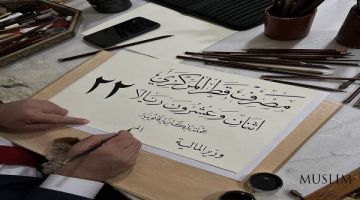 مصرف قطر المركزي
٢٢
اثنان وعشرون ريالا
وزير المالية
MUSLIM